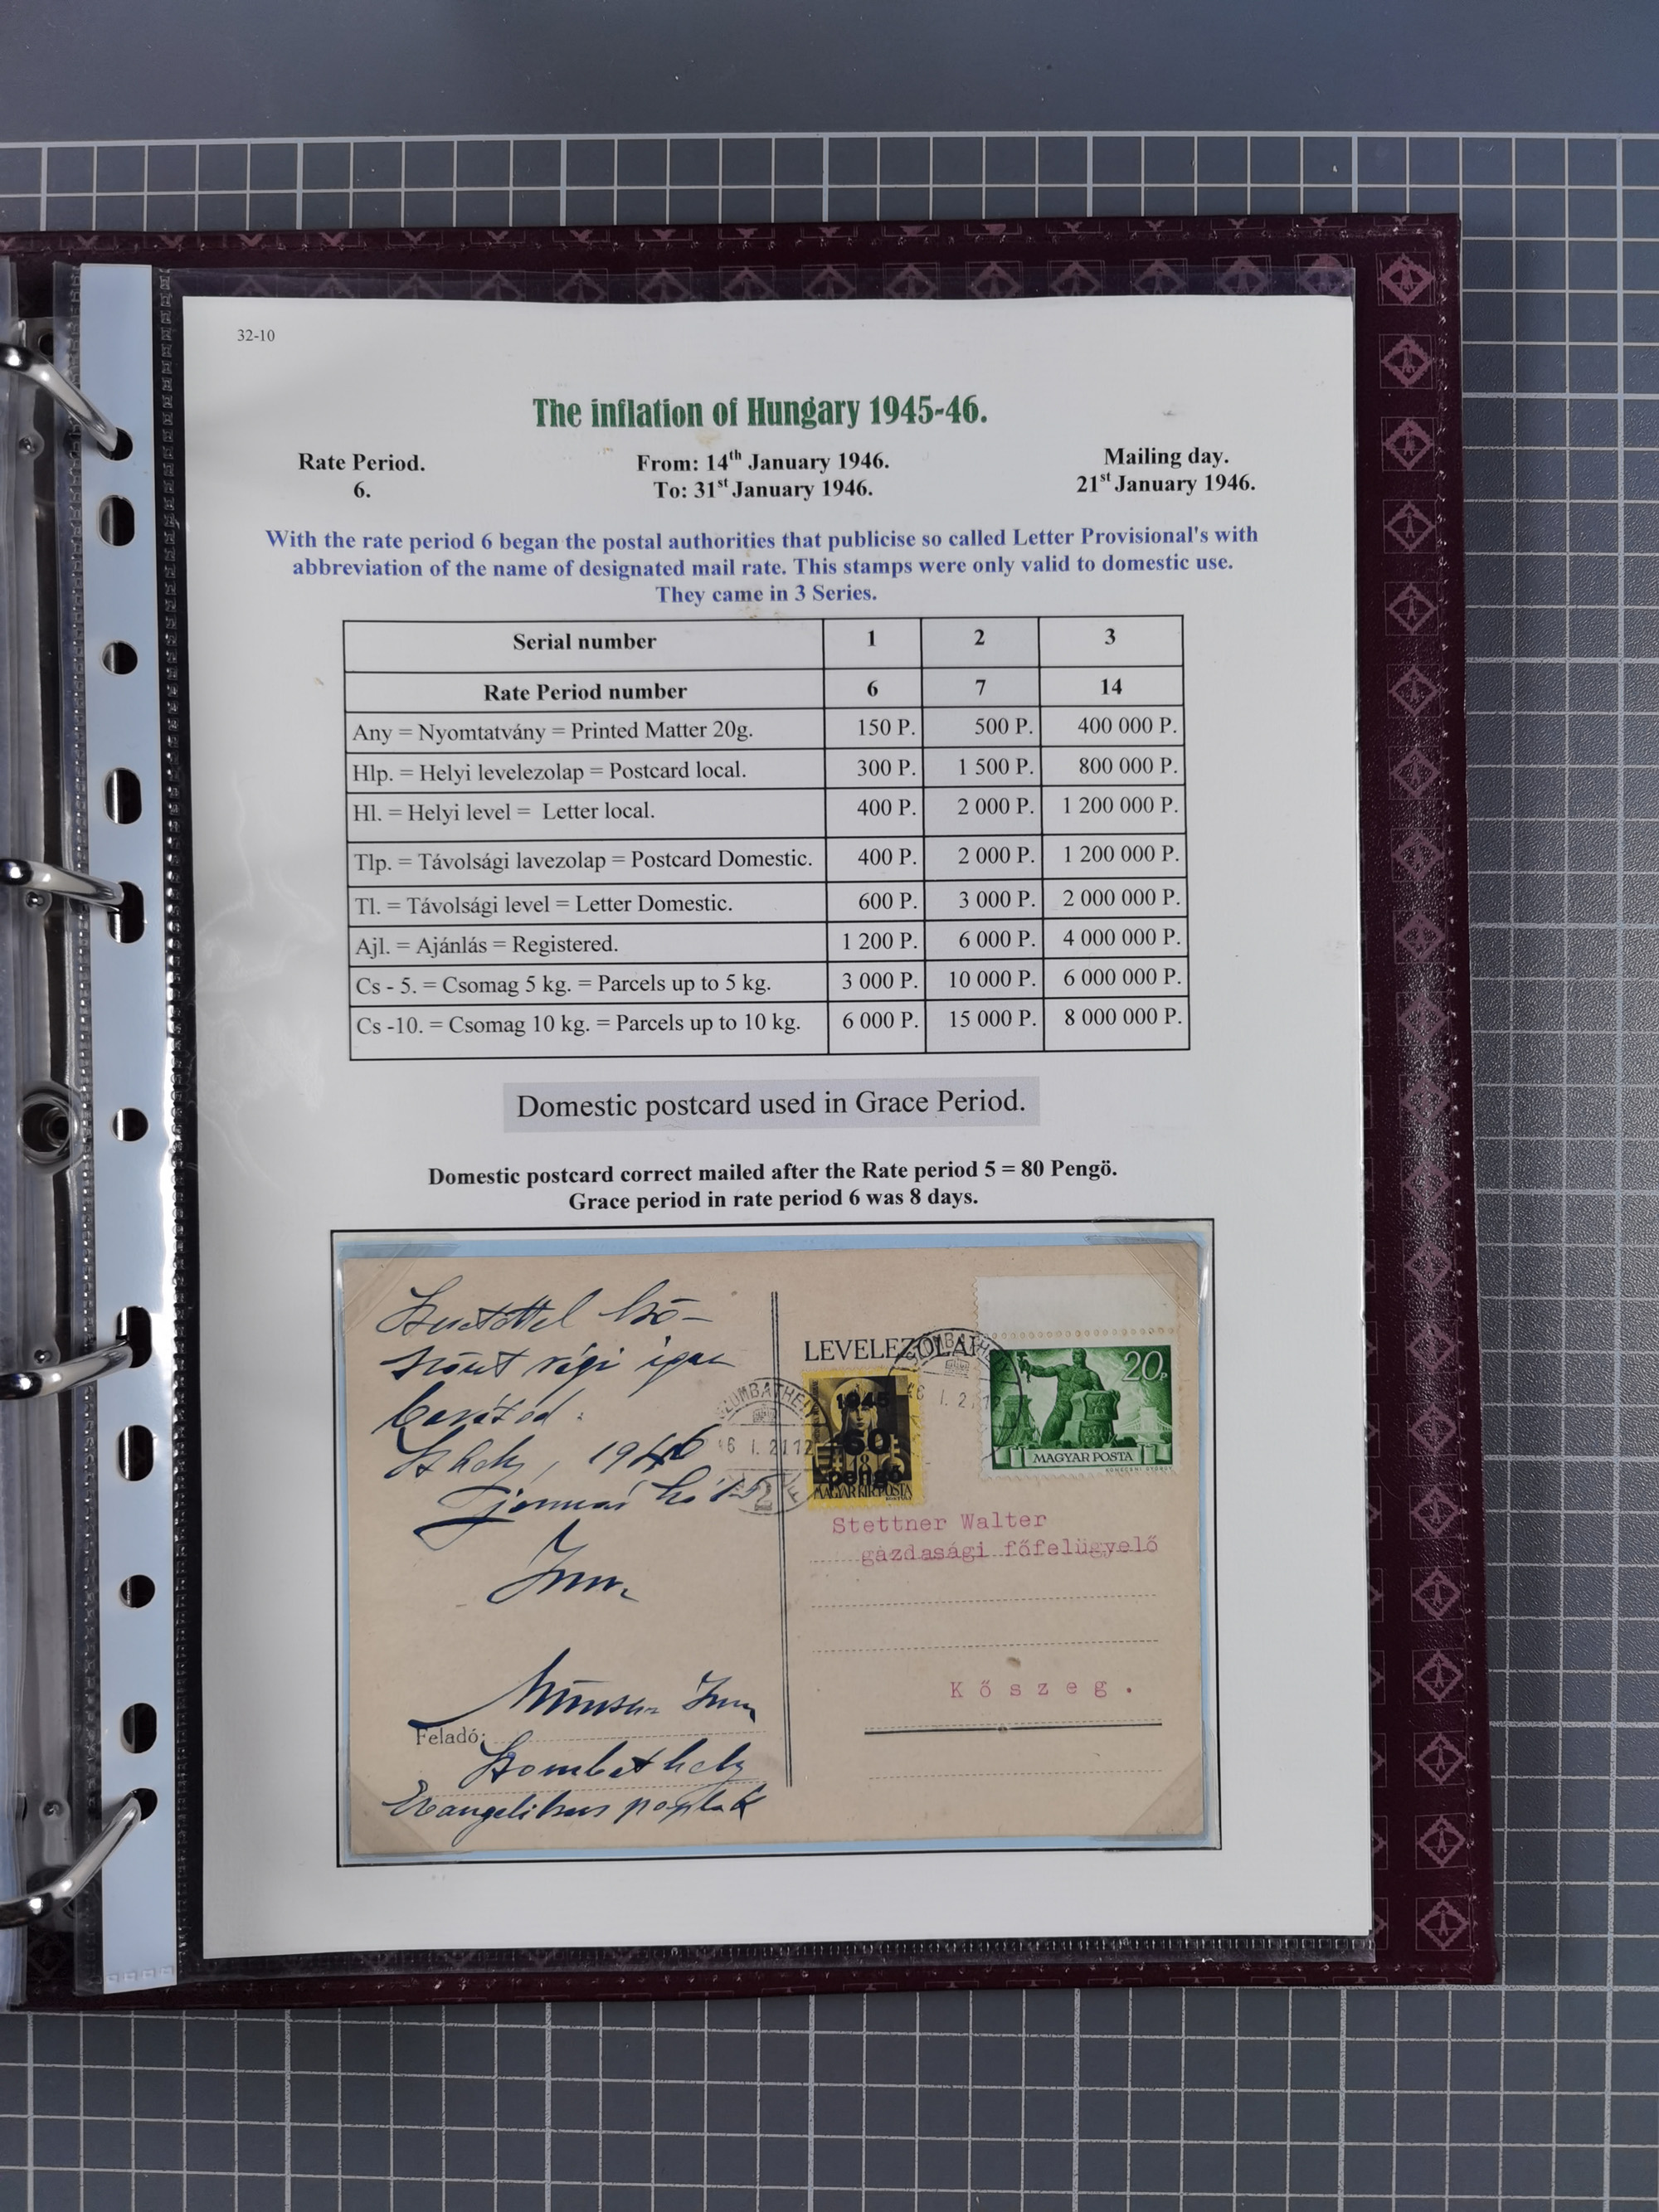 32-10
The inflation of Hungary 1945-46.
Rate Period.
6.
From: 14th January 1946.
To: 31st January 1946.
Mailing day.
21st January 1946.
With the rate period 6 began the postal authorities that publicise so called Letter Provisional's with
abbreviation of the name of designated mail rate. This stamps were only valid to domestic use.
They came in 3 Series.
Serial number 1 2 3
Rate Period number 6 7 14
Any = Nyomtatvány = Printed Matter 20g. 150 P. 500 P. 400 000 P.
Hlp. = Helyi levelezolap = Postcard local. 300 P. 1 500 P. 800 000 P.
Hl. = Helyi level = Letter local. 400 P. 2 000 P. 1 200 000 P.
Tlp. = Távolsági lavezolap = Postcard Domestic. 400 P. 2 000 P. 1 200 000 P.
Tl. = Távolsági level = Letter Domestic. 600 P. 3 000 P. 2 000 000 P.
Ajl. = Ajánlás = Registered. 1 200 P. 6 000 P. 4 000 000 P.
Cs - 5. = Csomag 5 kg. = Parcels up to 5 kg. 3 000 P. 10 000 P. 6 000 000 P.
Cs -10. = Csomag 10 kg. = Parcels up to 10 kg. 6 000 P. 15 000 P. 8 000 000 P.
Domestic postcard used in Grace Period.
Domestic postcard correct mailed after the Rate period 5 = 80 Pengö.
Grace period in rate period 6 was 8 days.
Szeretettel kö-
szönt régi igaz
barátod:
Szhely, 1946
január hó
Feladó:
Szombathely
Evangelikus paplak
LEVELEZŐLAP
SZOMBATHELY
46 I. 21 12
2
SZOMBATHELY
46 I. 21 12
1945
60
pengő
MAGYAR KIR. POSTA
20 P
MAGYAR POSTA
Stettner Walter
gazdasági főfelügyelő
Kőszeg.